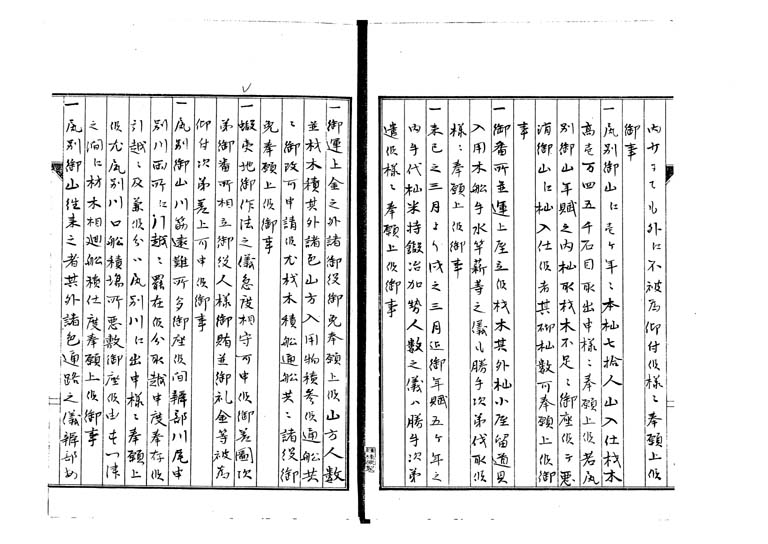 内少々ても外に不被為仰付候様ニ奉願上候
御事
一尻別御山に壱ケ年ニ本杣七拾人山入仕材木
高壱万四五千石目取出申様ニ奉願上候若尻
別御山年賦之内杣取材木不足ニ御座候ハヽ悪
消御山に杣入仕候者其砌杣数可奉願上候御
事
一御番所並運上屋立候材木其外杣小屋留道具
入用木船手水竿薪等之儀ハ勝手次第伐取候
様ニ奉願上候御事
一来巳之三月より戌之三月迄御年賦五ケ年之
内手代杣米持鍛冶加勢人数之儀ハ勝手次第
遣候様ニ奉願上候御事
一御運上金之外諸御役御免奉願上候山方人数
並材木積其外諸色山方入用物積参候通船共
ニ御改可申請候尤材木積船通船共ニ諸役御
免奉願上候御事
一蝦夷地御作法之儀急度相守可申候御差図次
第御番所相立御役人様御賄並御礼金等被為
仰付次第差上可申候御事
一尻別御山川筋遠難所ニ御座候間 川尾申
別川両所に引越ニ罷在候分取越申度奉存候
引越ニ及兼候分ハ尻別川に出申様ニ奉願上
候尤尻別川口船積場所悪敷御座候由
之澗に材木相廻船積仕度奉願上候御事
一尻別御山往来之者其外諸色通路之儀